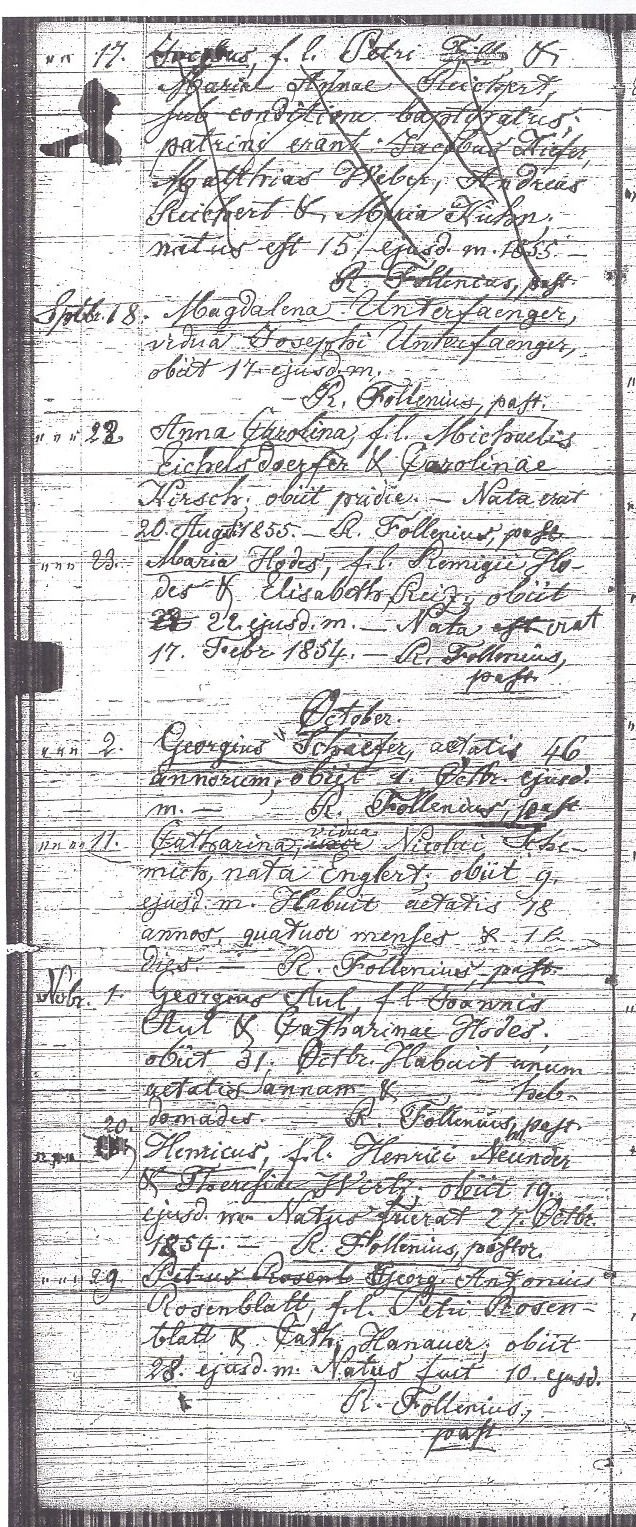 " " 17. Jacobus, f. l. Petri Till &
Mariae Annae Reichert,
sub conditione baptizatus;
patrini erant: Jacobus Kiefer,
Matthias Weber, Andreas
Reichert & Maria Kuhn,
natus est 15. ejusd. m. 1855 –
R. Follenius, past.
Sptbr. 18. Magdalena Unterfaenger,
vidua Josephi Unterfaenger,
obiit 17 ejusd. m.
– R. Follenius, past.
" " " 23. Anna Carolina, f. l. Michaelis
Eichelsdoerfer & Carolinae
Kirsch; obiit pridie. – Nata erat
20. Augst 1855. – R. Follenius, past
" " " 23. Maria Hodes, f. l. Remigii Ho-
des & Elisabeth; obiit
22. ejusd. m. – Nata est erat
17. Febr 1854. – R. Follenius,
past.
October.
" " " 2. Georgius Schaefer, aetatis 46
annorum, obiit 1. Octbr. ejusd.
m. – R. Follenius, past
" " " " 11. Catharina, vidua Nicolai Sche-
mich, nata Englert; obiit 9.
ejusd. m. Habuit aetatis 78
annos, quatuor menses &
dies. – R. Follenius, past.
Nobr. 1. Georgius Aul, f. l. Joannis
Aul & Catharinae Hodes,
obiit 31. Octbr. Habuit unum
aetatis annum & heb-
domades. – R. Follenius, past.
20. Henricus, f. l. Henrici
& Theresiae Wirtz; obiit 19.
ejusd. m. Natus fuerat 27. Octbr.
1854. – R. Follenius, pastor.
" " " 29. Petrus Rosenb Georg Antonius
Rosenblatt, f. l. Petri Rosen-
blatt & Cath. Hanauer; obiit
28. ejusd. m. Natus fuit 10. ejusd.
R. Follenius,
past